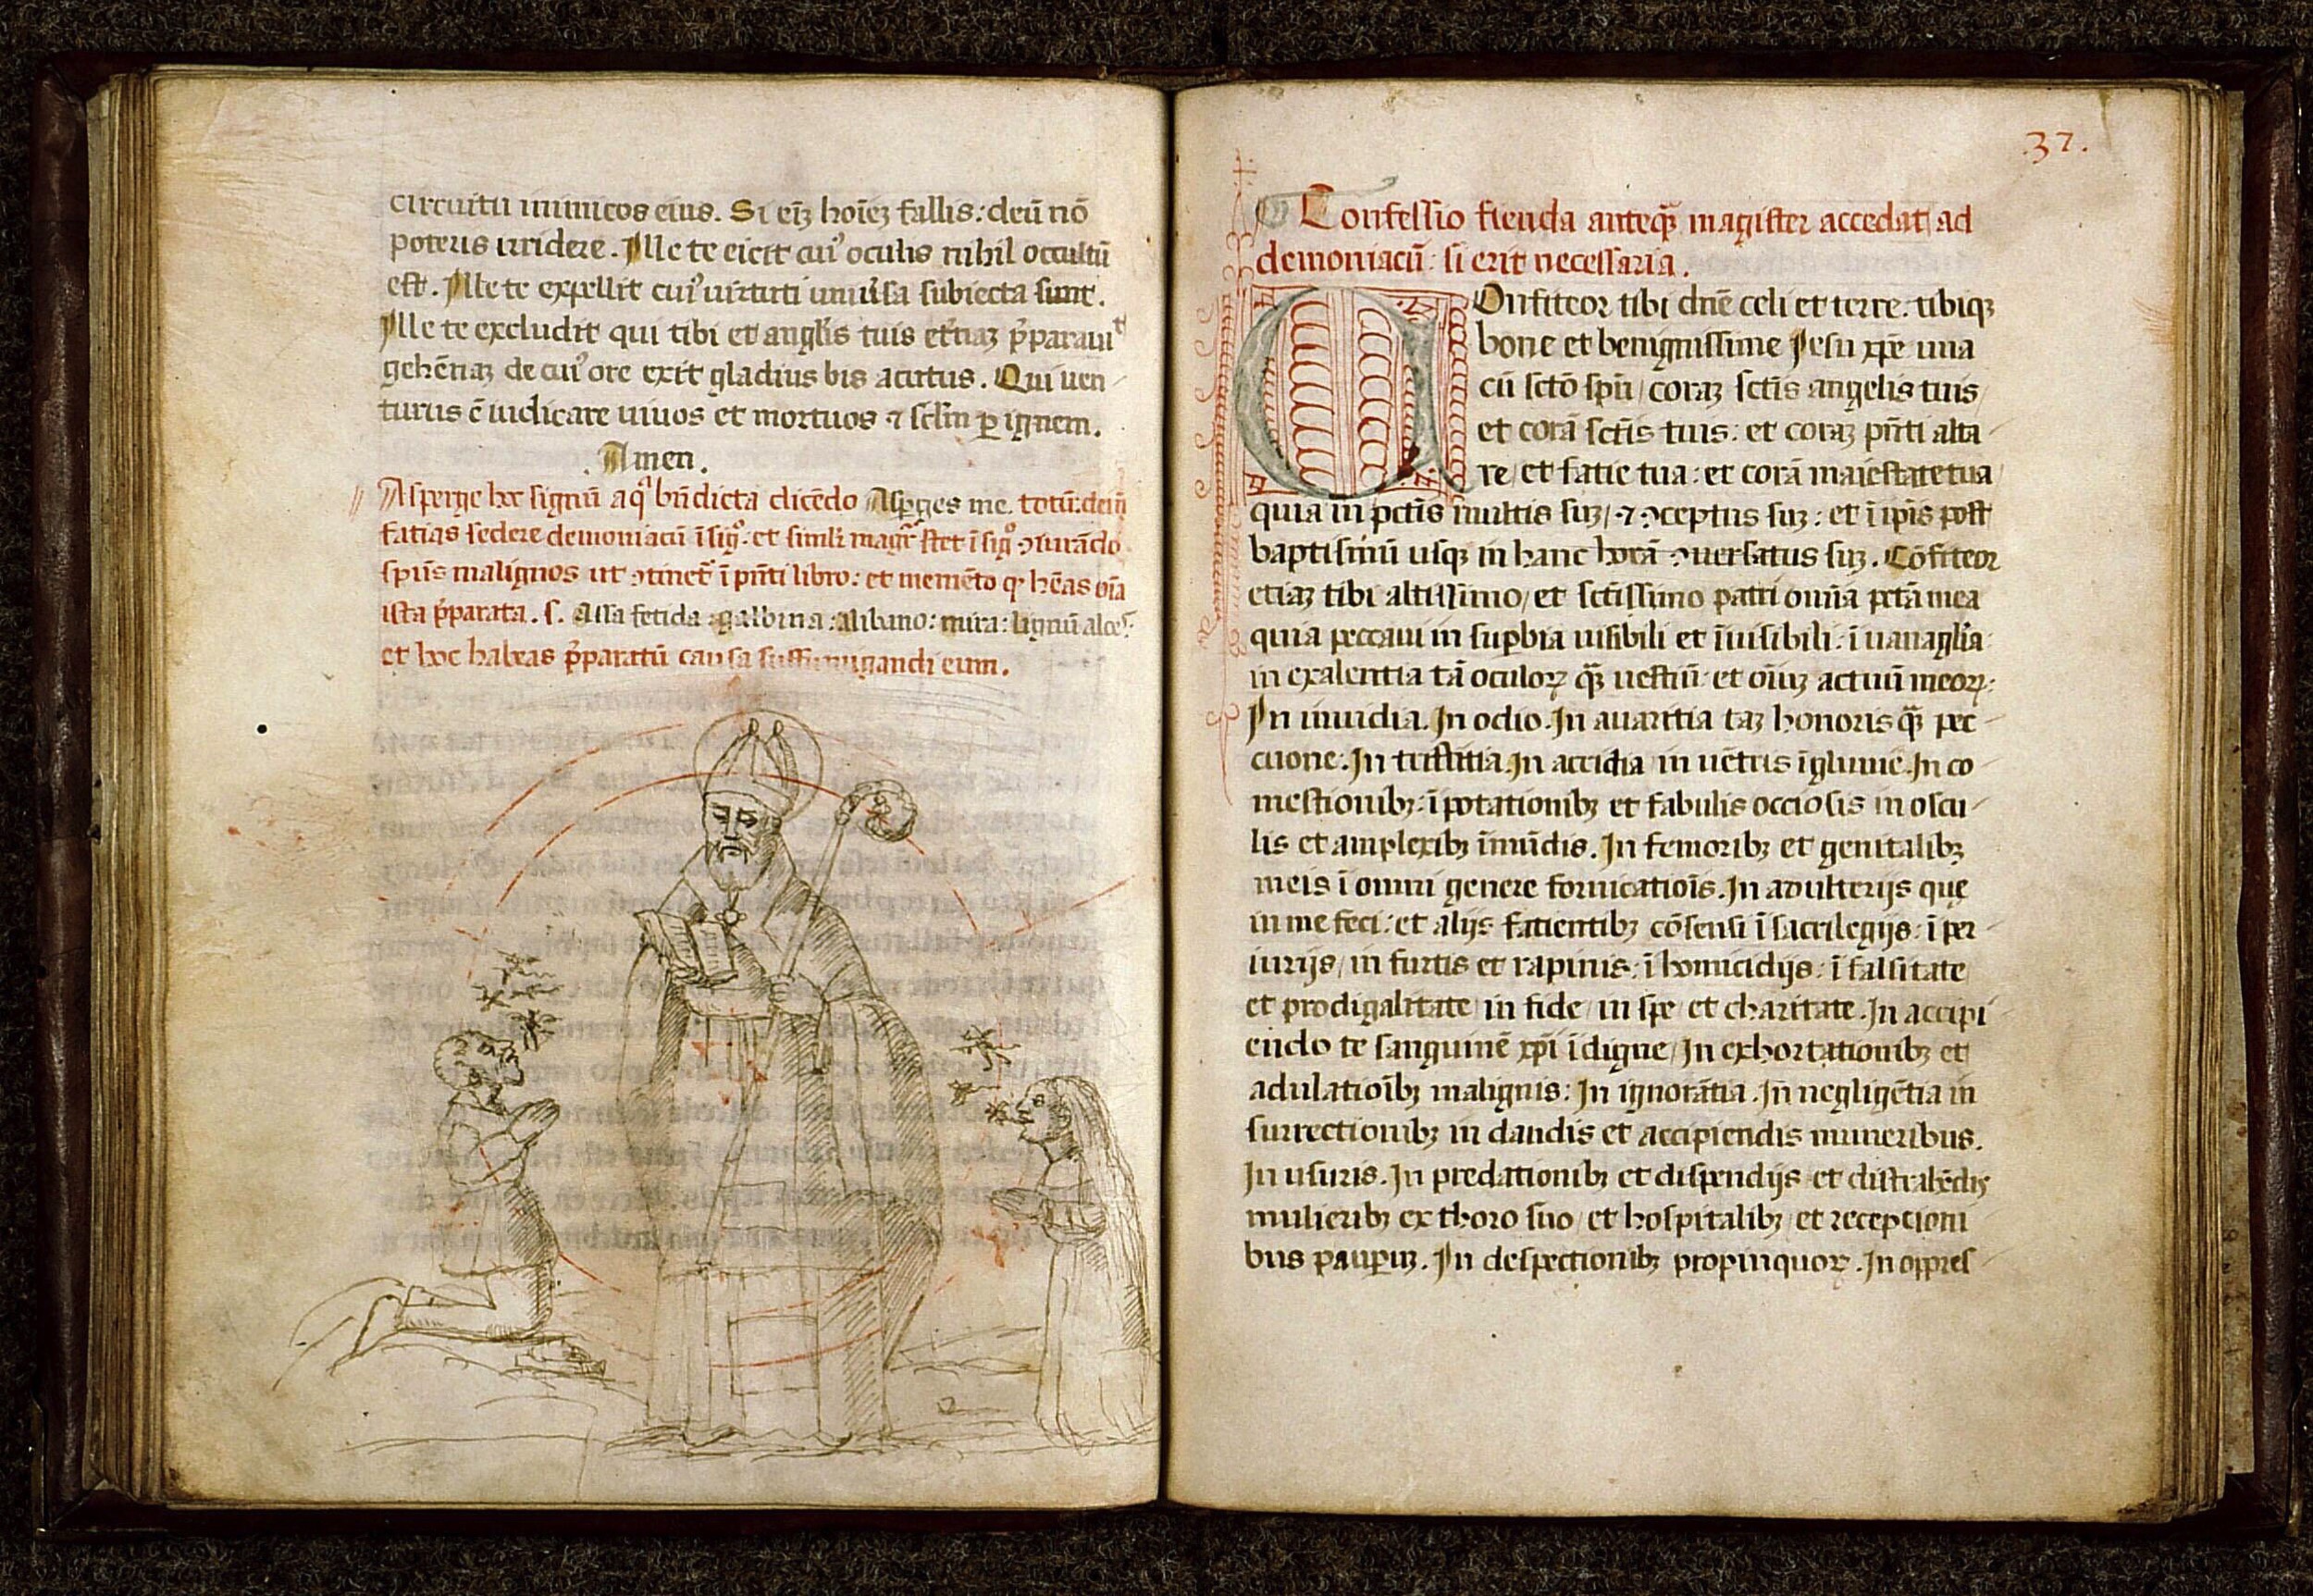 circuitu inimicos eius. Si eīȝ hoīeȝ fallis: deū nō
poteris irridere. Ille te eicit cuiꝰ oculis nihil occultū
est. Ille te expellit cuiꝰ uirtuti uniūsa subiecta sunt.
Ille te excludit qui tibi et angl̄is tuis et̄naȝ p̄parauit
gehēnaȝ de cuiꝰ ore exit gladius bis acutus. Qui uen
turus ē iudicare uiuos et mortuos ⁊ sc̄lm ꝑ ignem.
.Amen.
Asperge hoc signū aqͣ bn̄dicta dicēdo Asꝑges me. totū: dein̄
facias sedere demoniacū ī sigͦ. et simlr̄ magr̄ stet ī sigͦ ꝯiurādo
spūs malignos ut ꝯtinet̄ ī pn̄ti libro: et memēto qͥ hēas oīa
ista p̄parata. s. Assa fetida: galbina: alibano: mirra: lignū aloes:
et hoc habeas p̄paratū causa suffumigandi eum.
.37.
Confessio fienda anteqꝫ magister accedat ad
demoniacū: si erit necessaria.
COnfiteor tibi dn̄e celi et terre. tibiqȝ
bone et benignissime Jesu xp̄e una
cū sct̄o spū/ coraȝ sct̄is angelis tuis/
et corā sct̄is tuis: et coraȝ pn̄ti alta
re/ et facie tua: et corā maiestate tua/
quia in pct̄is multis suȝ/ ⁊ ꝯceptus suȝ: et ī ip̄is post
baptismū usqȝ in hanc horā ꝯuersatus suȝ. Cōfiteor
etiaȝ tibi altissimo/ et sct̄issimo patri omīa pctā mea
quia peccaui in suꝑbia uisibili et īuisibili: ī uanaglīa:
in exalentia tā oculoꝝ qꝫ uestiū et oīuȝ actuū meoꝝ:
In inuidia. In odio. In auaritia taȝ honoris qꝫ pec
cuone: In tristitia. In accidia in uētris īgluuie. In co
mestionibȝ: ī potationibȝ et fabulis occiosis in oscu
lis et amplexibȝ īmūdis. In femoribȝ et genitalibȝ
meis ī omni genere fornicatiois. In adulterijs que
in me feci: et alijs facientibȝ cōsensi ī sacrilegijs: ī per
iurijs/ in furtis et rapinis: ī homicidijs: ī falsitate
et prodigalitate/ in fide/ in spe/ et charitate. In accipi
endo te sanguinē xp̄i īdigne/ In exhortationibȝ et
adulatioībȝ malignis: In ignorātia. In negligētia in
surrectionibȝ in dandis et accipiendis muneribus.
In usuris. In predationibȝ et dispendijs et distrahēdis
mulieribȝ ex thoro suo/ et hospitalibȝ/ et receptioni
bus pauꝑuȝ. In despectionibȝ propinquoꝝ. In oppres